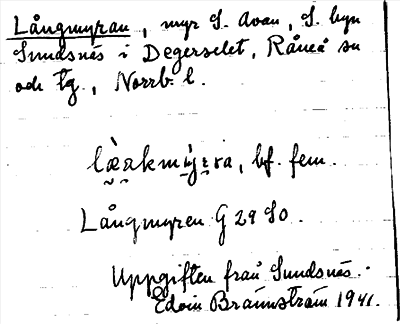 Långmyran, myr S. Avan, S. byn
Sundsnäs i Degerselet, Råneå sn
och tg., Norrb. l.
bf. fem.
Långmyren G 29 SO.
Uppgiften från Sundsnäs.
Edvin Brännström 1941.